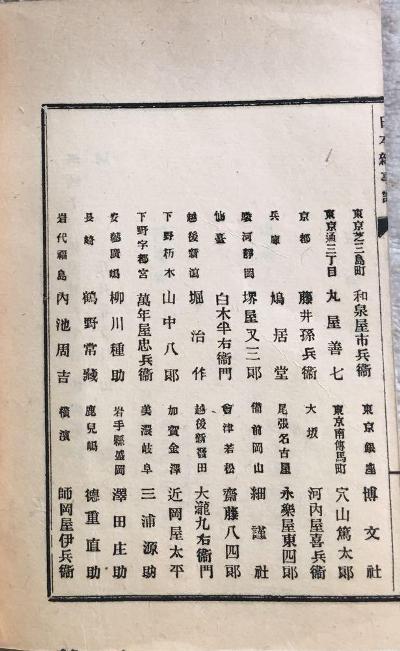 東京芝三島町 和泉屋市兵衞 東京銀座 博文社
東京通三丁目 丸屋善七 東京南傳馬町 穴山篤太郎
京都 藤井孫兵衞 大坂 河內屋喜兵衞
兵庫 鳩居堂 尾張名古屋 永樂屋東四郎
駿河靜岡 堺屋又三郎 備前岡山 細謹社
仙臺 白木半右衞門 會津若松 齋藤八四郎
越後新潟 堀治作 越後新發田 大瀧九右衞門
下野栃木 山中八郎 加賀金澤 近岡屋太平
下野宇都宮 萬年屋忠兵衞 美濃岐阜 三浦源助
安藝廣嶋 柳川種助 岩手縣盛岡 澤田庄助
長崎 鶴野常藏 鹿兒嶋 德重直助
岩代福島 內池周吉 橫濱 師岡屋伊兵衞